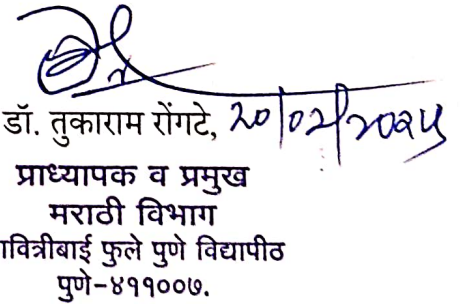 डॉ. तुकाराम रोंगटे, २०/०२/२०२५
प्राध्यापक व प्रमुख
मराठी विभाग
ावित्रीबाई फुले पुणे विद्यापीठ
पुणे-४११००७.